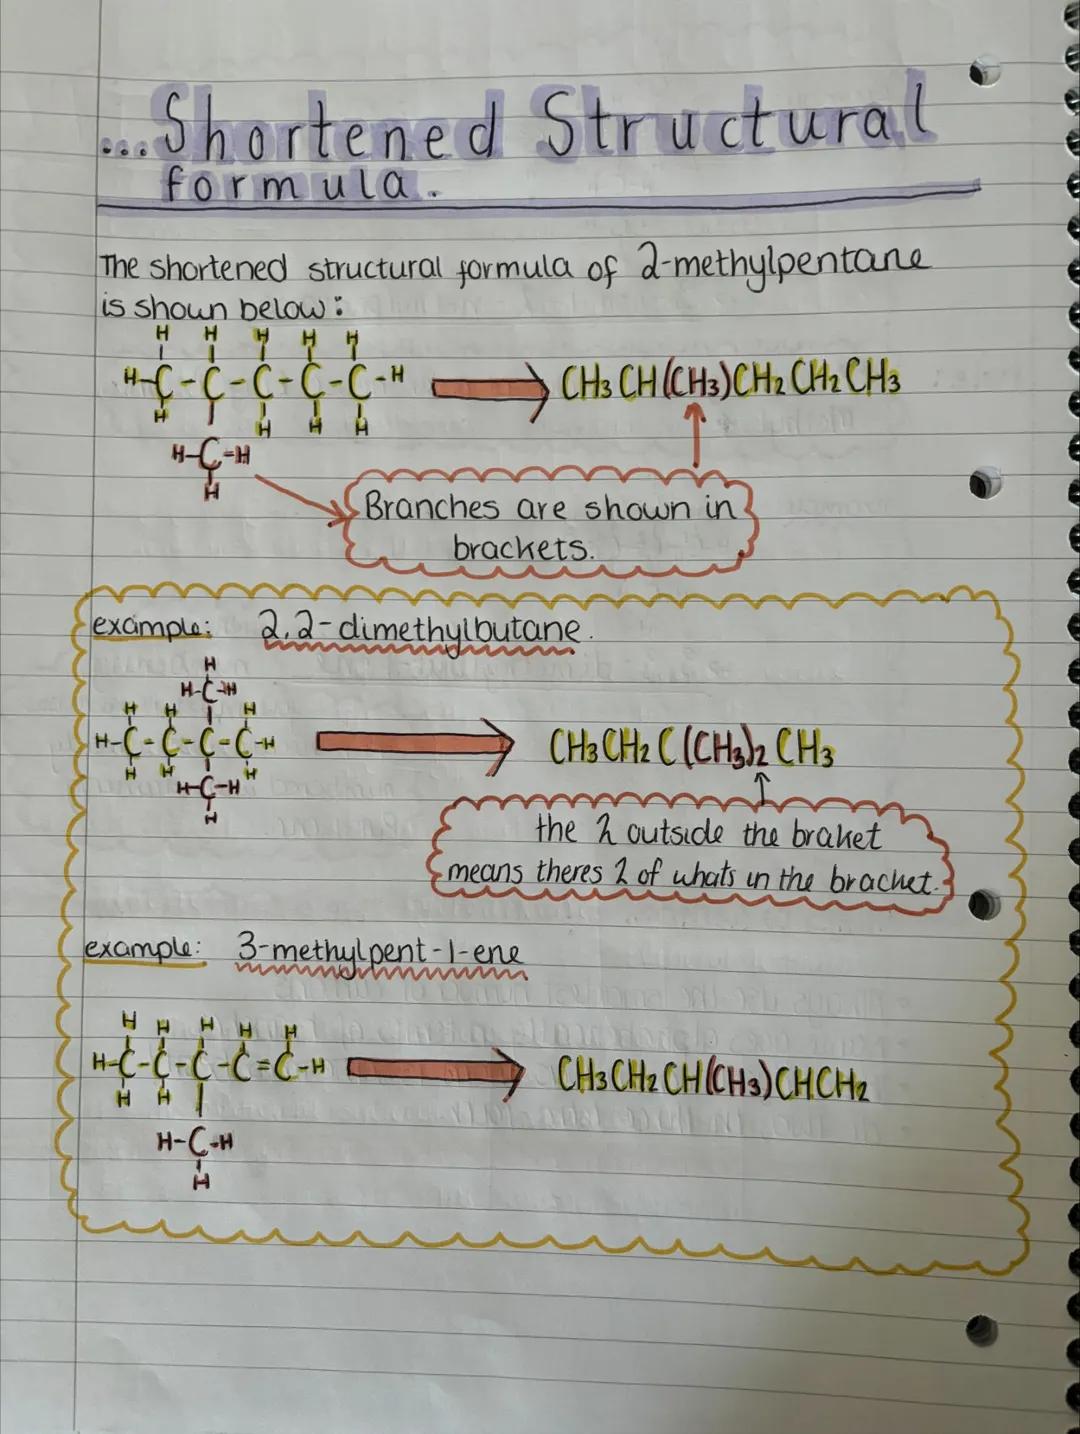 ...Shortened Structural
formula.
The shortened structural formula of 2-methylpentane
is shown below:
H H H H H
H-C-C-C-C-C-H
H H H H
H-C-H
H
CH3CH(CH3)CH2CH2CH3
Branches are shown in
brackets.
example: 2,2-dimethylbutane.
H
H-C-H
H H H
H-C-C-C-C-H
H H H
H-C-H
H
CH3CH2C(CH3)2CH3
the 2 outside the braket
means theres 2 of whats in the bracket.
example: 3-methylpent-1-ene
H H H H H
H-C-C-C-C=C-H
H H
H-C-H
H
CH3CH2CH(CH3)CHCH2